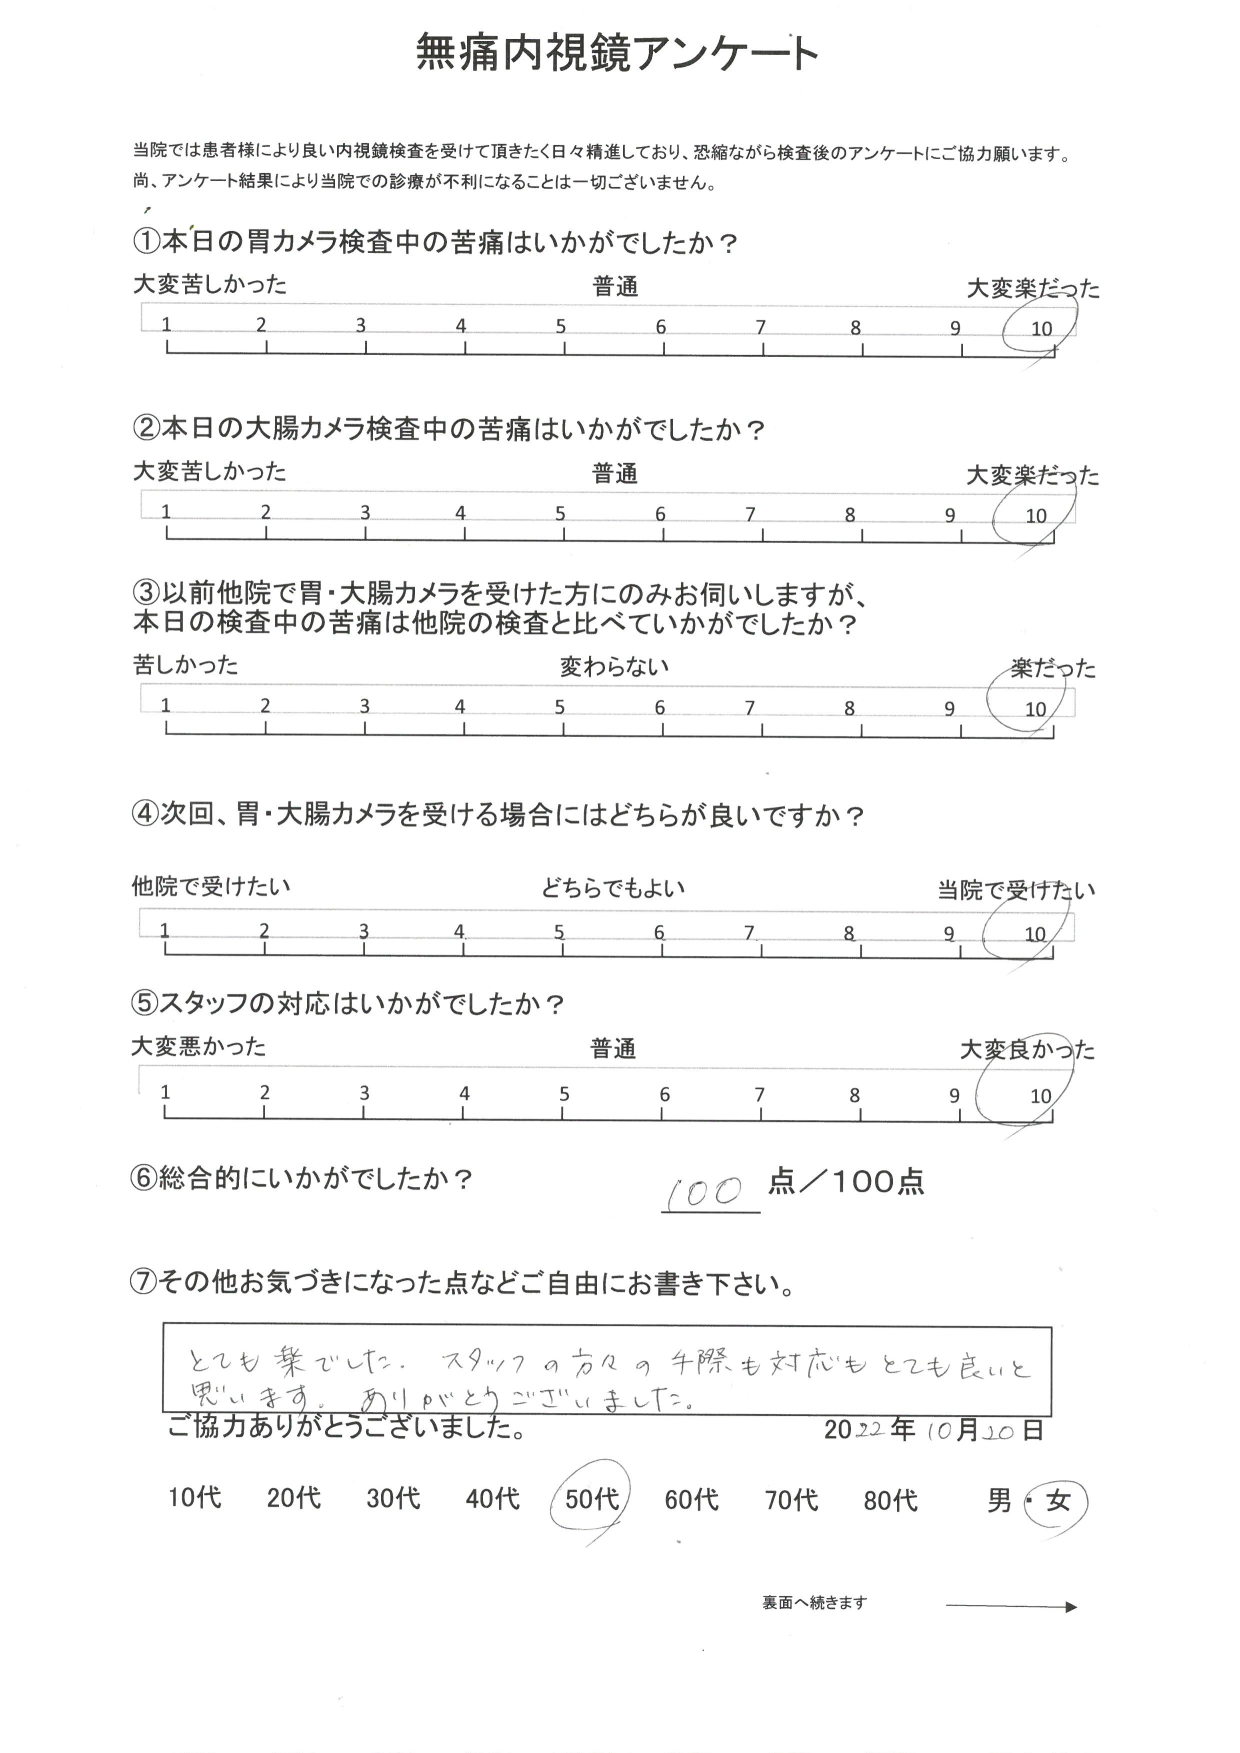 無痛内視鏡アンケート
当院では患者様により良い内視鏡検査を受けて頂きたく日々精進しており、恐縮ながら検査後のアンケートにご協力願います。
尚、アンケート結果により当院での診療が不利になることは一切ございません。
①本日の胃カメラ検査中の苦痛はいかがでしたか？
大変苦しかった 普通 大変楽だった
1 2 3 4 5 6 7 8 9 10
②本日の大腸カメラ検査中の苦痛はいかがでしたか？
大変苦しかった 普通 大変楽だった
1 2 3 4 5 6 7 8 9 10
③以前他院で胃・大腸カメラを受けた方にのみお伺いしますが、
本日の検査中の苦痛は他院の検査と比べていかがでしたか？
苦しかった 変わらない 楽だった
1 2 3 4 5 6 7 8 9 10
④次回、胃・大腸カメラを受ける場合にはどちらが良いですか？
他院で受けたい どちらでもよい 当院で受けたい
1 2 3 4 5 6 7 8 9 10
⑤スタッフの対応はいかがでしたか？
大変悪かった 普通 大変良かった
1 2 3 4 5 6 7 8 9 10
⑥総合的にいかがでしたか？ 100 点／100点
⑦その他お気づきになった点などご自由にお書き下さい。
とても楽でした. スタッフの方々の手際も対応もとても良いと
思います。ありがとうございました。
ご協力ありがとうございました。 2022年10月20日
10代 20代 30代 40代 50代 60代 70代 80代 男・女
裏面へ続きます